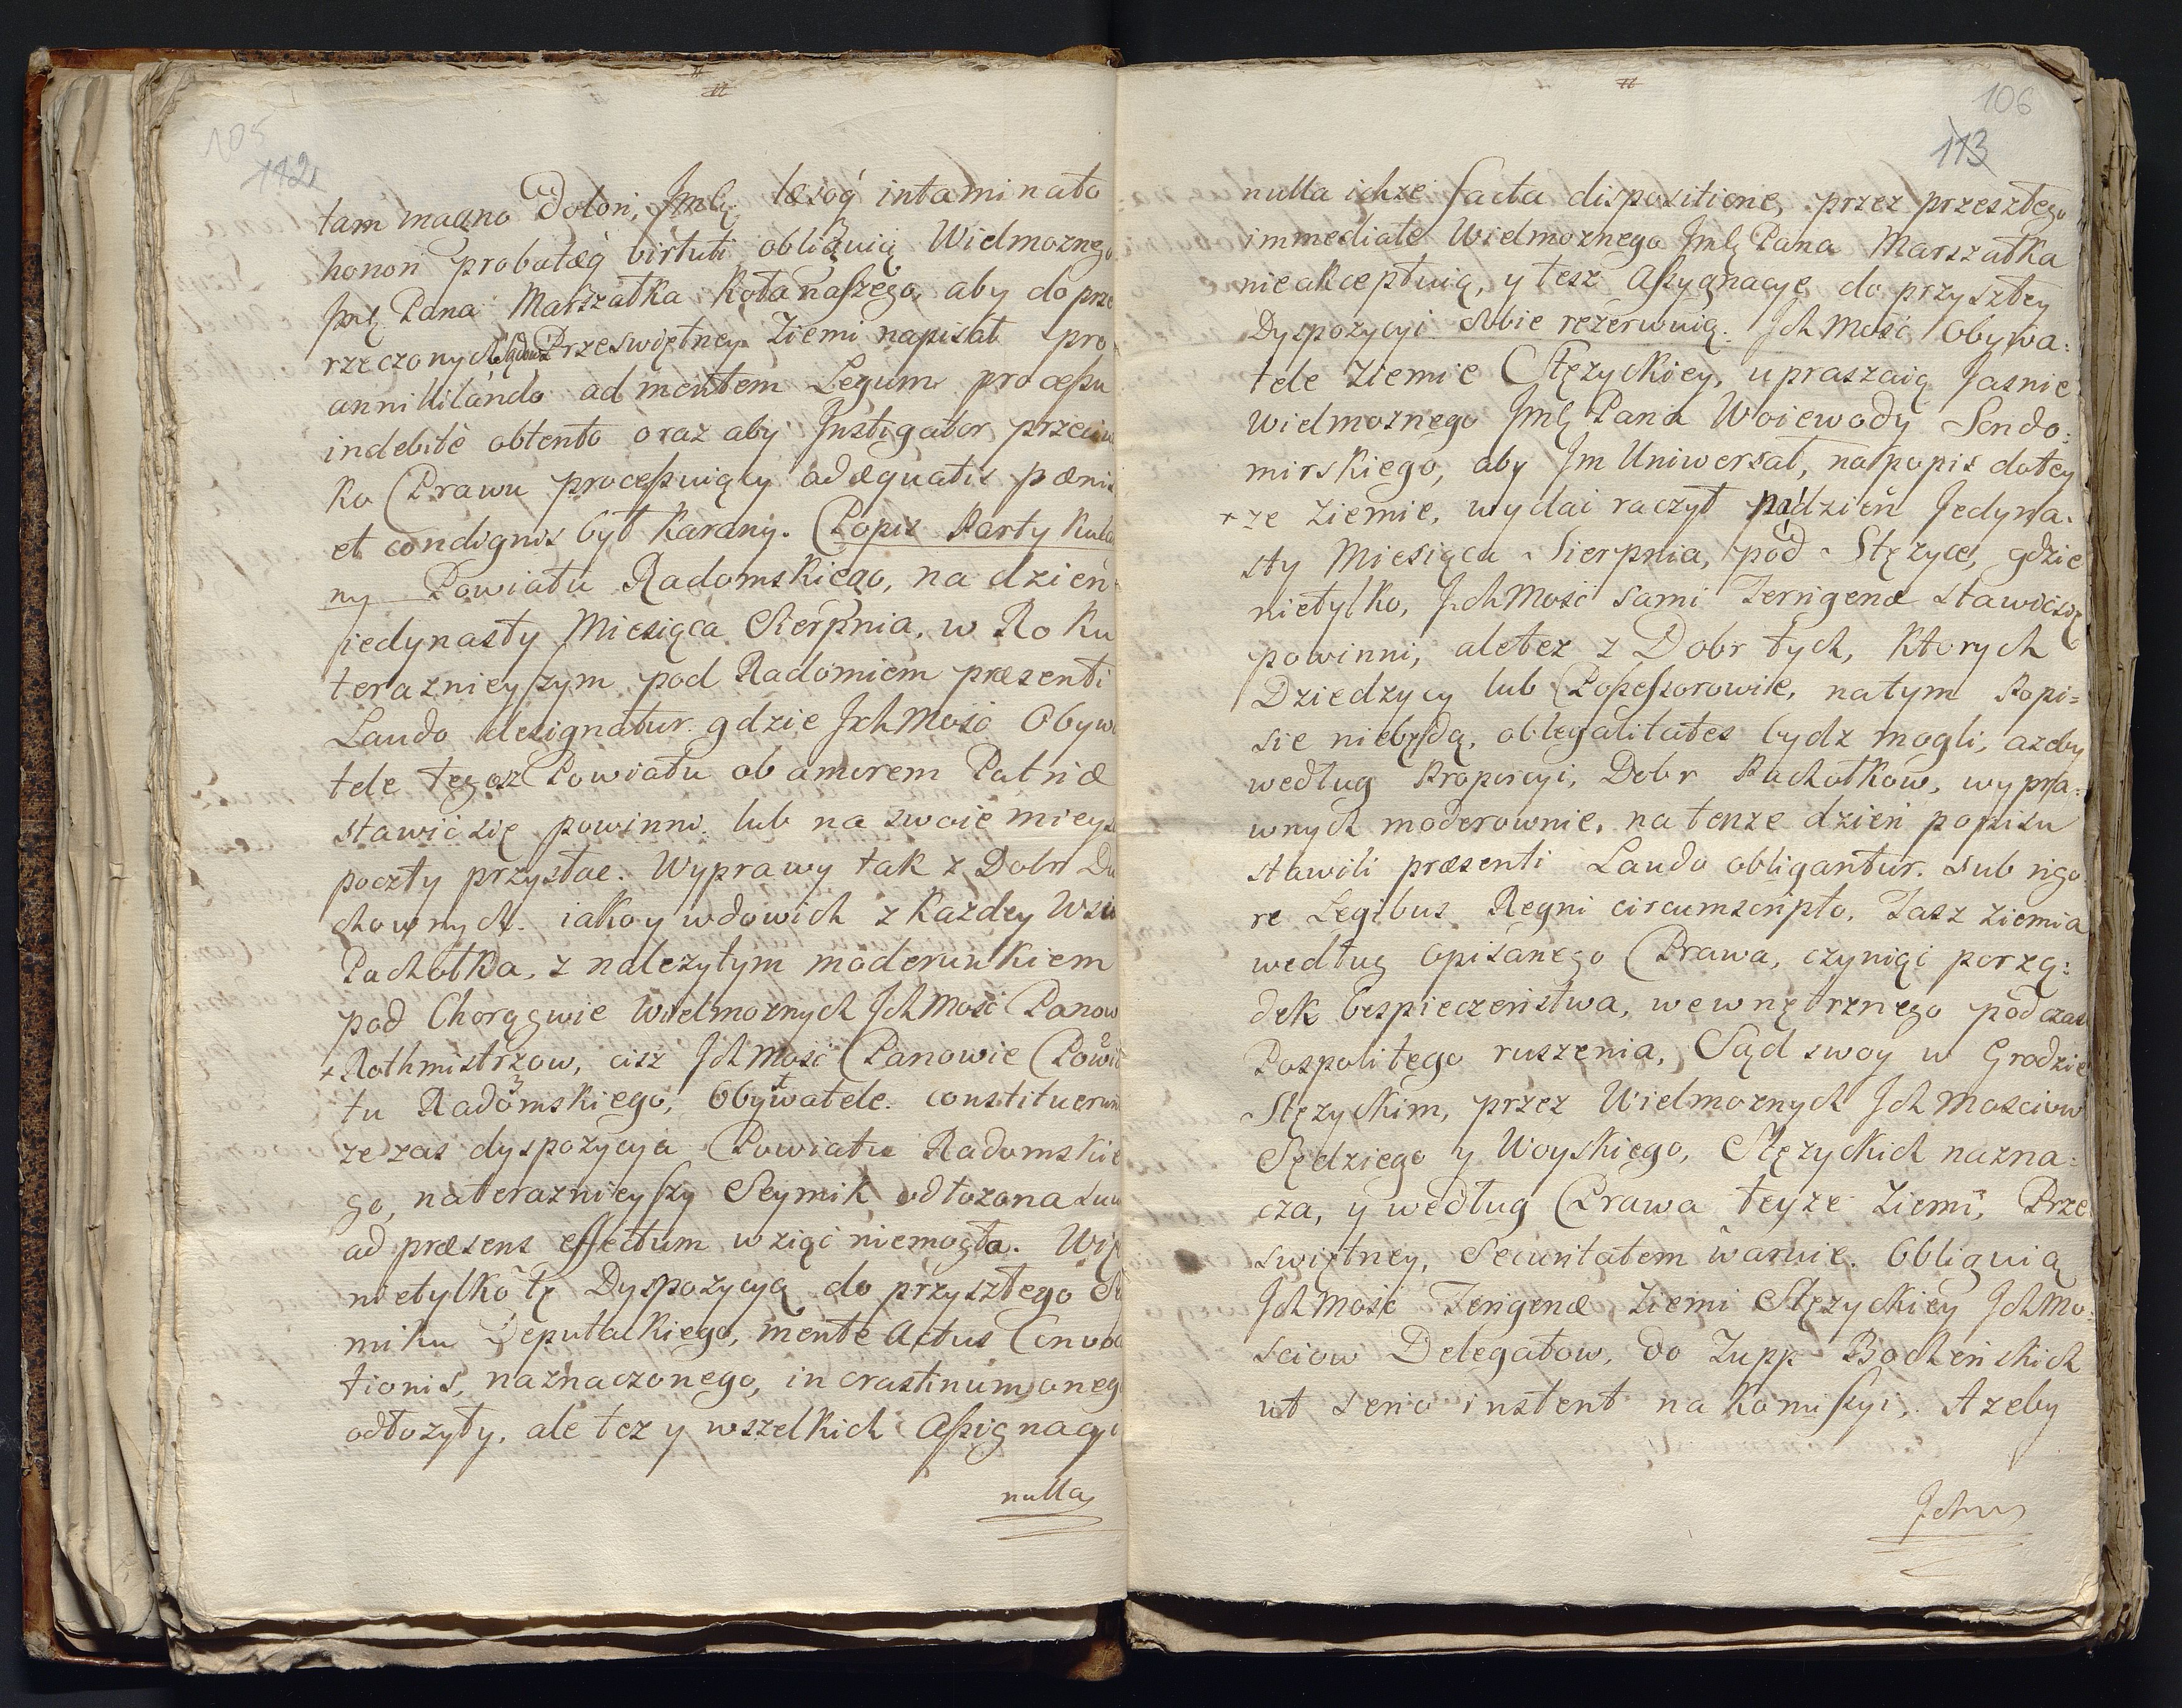 105
112
tam magno dolori, Jmści læsoq́ intaminato
honori probatæq́ virtuti obliguią Wielmoznego
Jmści Pana Marszałka Koła naszego, aby do prze
rzeczonych Sądow Przeswiętney Ziemi napisał pro
annihilando ad mentem Legum processu
indebitè obtento oraz aby Instigator przeciw
ko Prawu processuiący adæquatis pænis
et condignis był karany. Popis Party kula
ny Powiatu Radomskiego, na dzień
jedynasty Miesiąca Sierpnia, w Roku
teraznieyszym pod Radomiem præsenti
Laudo designatur. gdzie Jchmość Obywa
tele tegosz Powiatu ob amorem Patriæ
stawić się powinni. lub na swoie mieys
poczty przysłac. Wyprawy tak z Dobr Du
chownych. iako y wdowich z Kazdey Wsi
Pachołka, z nalezytym moderunkiem
pod Chorągwie Wielmoznych Jchmość Panow
+ Rothmistrzow, cisz Jchmość Panowie Powia
tu Radomskiego, Obywatele. constituerunt
ze zas dyspozycya Powiatu Radomskie
go, na teraznieyszy Seymik odłozona suum
ad præsens effectum wziąć niemogła. Więc
nietylko tę Dyspozycyą do przyszłego Se
miku Deputackiego, mente Actus Convoca
tionis, naznaczonego, in crastinum onego
odłozyły, ale tez y wszelkich Assignacyi
nulla
106
113
nulla ichze facta dispositione, przez przeszłego
immediatè Wielmoznego Jmści Pana Marszałka
nieakceptuią, y tesz Assygnacye do przyszłey
Dyspozycyi sobie rezerwuią. Jchmość Obywa:
tele Ziemie Stęzyckiey, upraszaią Jasnie
Wielmoznego Jmści Pana Woiewody Sendo:
mirskiego, aby Jm Uniwersał, na popis do tey
+ ze Ziemie, wydai raczył na dzień Jedyna:
sty Miesiąca Sierpnia, pod Stęzycę, gdzie
nietylko, Jchmość sami Terrigenæ stawić się
powinni, ale tez z Dobr tych, ktorych
Dziedzycy lub Possessorowie, na tym Popi=
sie niebędą, ob legalitates bydz mogli, azeby
według Proporcyi, Dobr Pachołkow, wypra:
wnych moderownie, na tenze dzień popisu
stawili præsenti Laudo obligantur. sub rigo:
re Legibus Regni circumscripto. Tasz Ziemia
według opisanego Prawa, czyniąc porzą:
dek bespieczeństwa, wewnętrznego podczas
Pospolitego ruszenia, Sąd swoy w Grodzie
Stęzyckim, przez Wielmoznych Jchmosciow
Sędziego y Woyskiego, Stęzyckich nazna:
cza, y według Prawa teyze Ziemi, Prze
swiętney, Securitatem waruie. Obliguią
Jchmość Terrigenæ Ziemi Stęzyckiey Jchmo:
sciow Delegatow, do Zupp Bocheńskich
ut serio instent na Komissyi, Azeby
Jchm